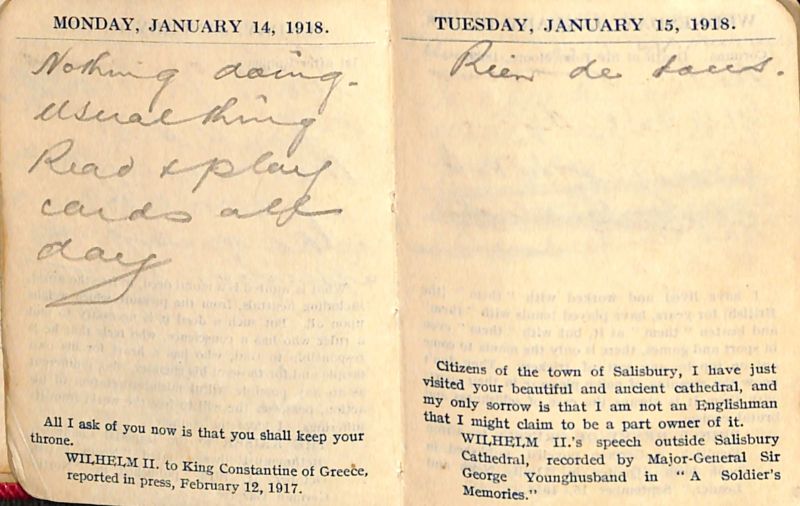 MONDAY, JANUARY 14, 1918.
Nothing doing.
usual thing
Read & play
cards all
day
All I ask of you now is that you shall keep your
throne.
WILHELM II. to King Constantine of Greece,
reported in press, February 12, 1917.
TUESDAY, JANUARY 15, 1918.
Rien de tous.
Citizens of the town of Salisbury, I have just
visited your beautiful and ancient cathedral, and
my only sorrow is that I am not an Englishman
that I might claim to be a part owner of it.
WILHELM II.'s speech outside Salisbury
Cathedral, recorded by Major-General Sir
George Younghusband in "A Soldier's
Memories."